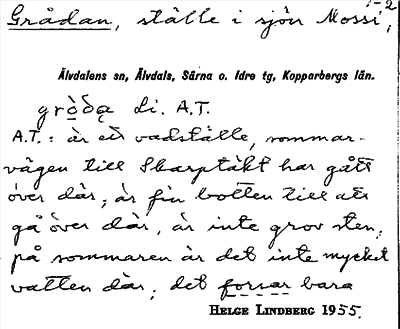 1-2
Grådan, ställe i sjön Mossi,
Älvdalens sn, Älvdals, Särna o. Idre tg, Kopparbergs län.
gròdạ di. A.T.
A.T.: är ett vadställe, sommar-
vägen till Skarptäkt har gått
över där; är fin botten till att
gå över där, är inte grov sten;
på sommaren är det inte mycket
vatten där; det forsar bara
HELGE LINDBERG 1955.